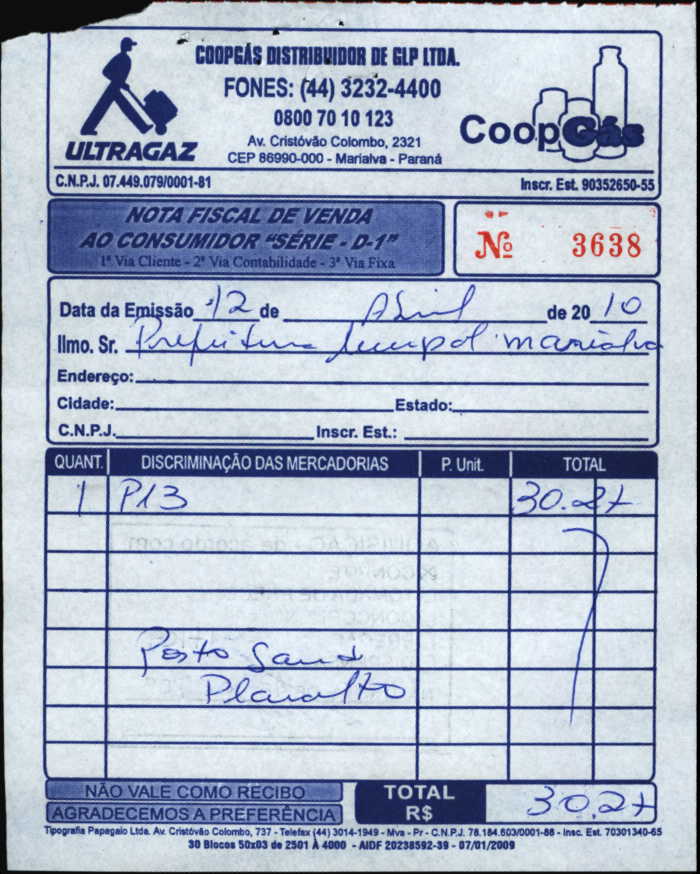 COOPGÁS DISTRIBUIDOR DE GLP LTDA.
FONES: (44) 3232-4400
0800 70 10 123
Av. Cristóvão Colombo, 2321
CEP 86990-000 - Marialva - Paraná
ULTRAGAZ
CoopGás
C.N.P.J. 07.449.079/0001-81 Inscr. Est. 90352650-55
NOTA FISCAL DE VENDA
AO CONSUMIDOR "SÉRIE - D-1"
1ª Via Cliente - 2ª Via Contabilidade - 3ª Via Fixa
Nº 3638
Data da Emissão 12 de Abril de 2010
Ilmo. Sr. Prefeitura
Endereço:
Cidade: Estado:
C.N.P.J. Inscr. Est.:
QUANT. DISCRIMINAÇÃO DAS MERCADORIAS P. Unit. TOTAL
1 P13 30.27
Posto
Planalto
NÃO VALE COMO RECIBO
AGRADECEMOS A PREFERÊNCIA
TOTAL R$ 30,27
Tipografia Papagaio Ltda. Av. Cristóvão Colombo, 737 - Telefax (44) 3014-1949 - Mva - Pr - C.N.P.J. 78.184.603/0001-86 - Insc. Est. 70301340-65
30 Blocos 50x03 de 2501 À 4000 - AIDF 20238592-39 - 07/01/2009